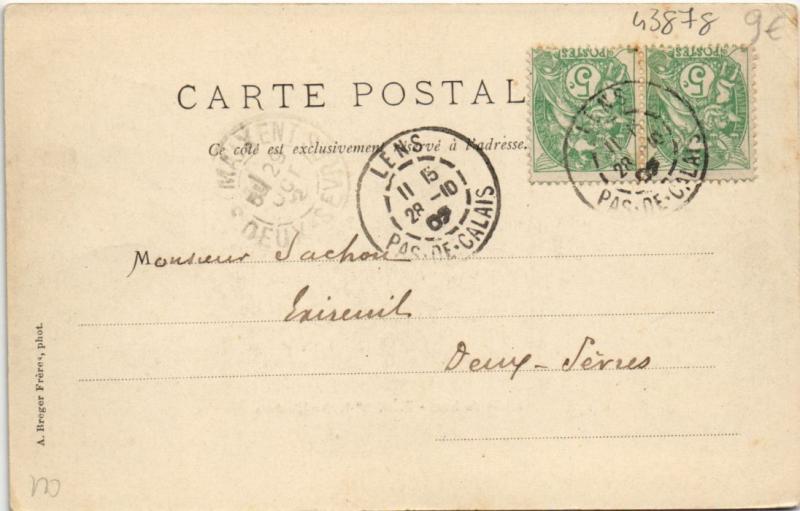 43878
9€
CARTE POSTAL
Ce côté est exclusivement réservé à l'adresse.
POSTES
5
POSTES
5
LENS
11 15
28 -10
03
PAS-DE-CALAIS
LENS
28 -10
PAS-DE-CALAIS
Monsieur Sachon
Exireuil
Deux-Sèvres
A. Breger Frères, phot.